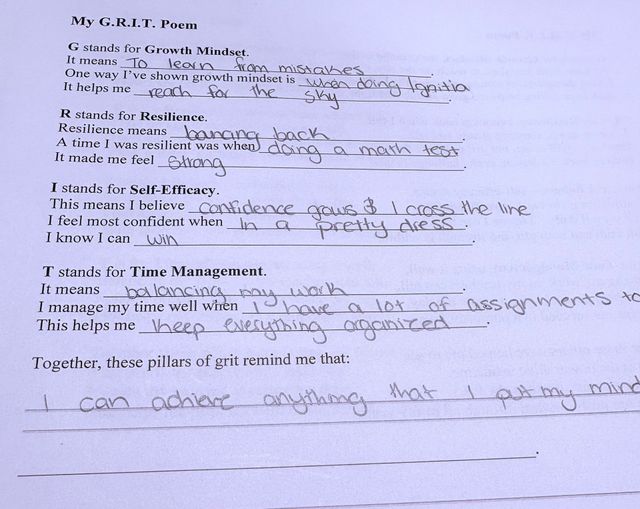 My G.R.I.T. Poem
G stands for Growth Mindset.
It means To learn from mistakes.
One way I've shown growth mindset is when doing Ignitia
It helps me reach for the sky.
R stands for Resilience.
Resilience means bouncing back.
A time I was resilient was when doing a math test.
It made me feel Strong.
I stands for Self-Efficacy.
This means I believe confidence gows & I cross the line
I feel most confident when In a pretty dress.
I know I can win.
T stands for Time Management.
It means balancing my work.
I manage my time well when I have a lot of assignments to
This helps me keep everything organized.
Together, these pillars of grit remind me that:
I can achieve anything that I put my mind